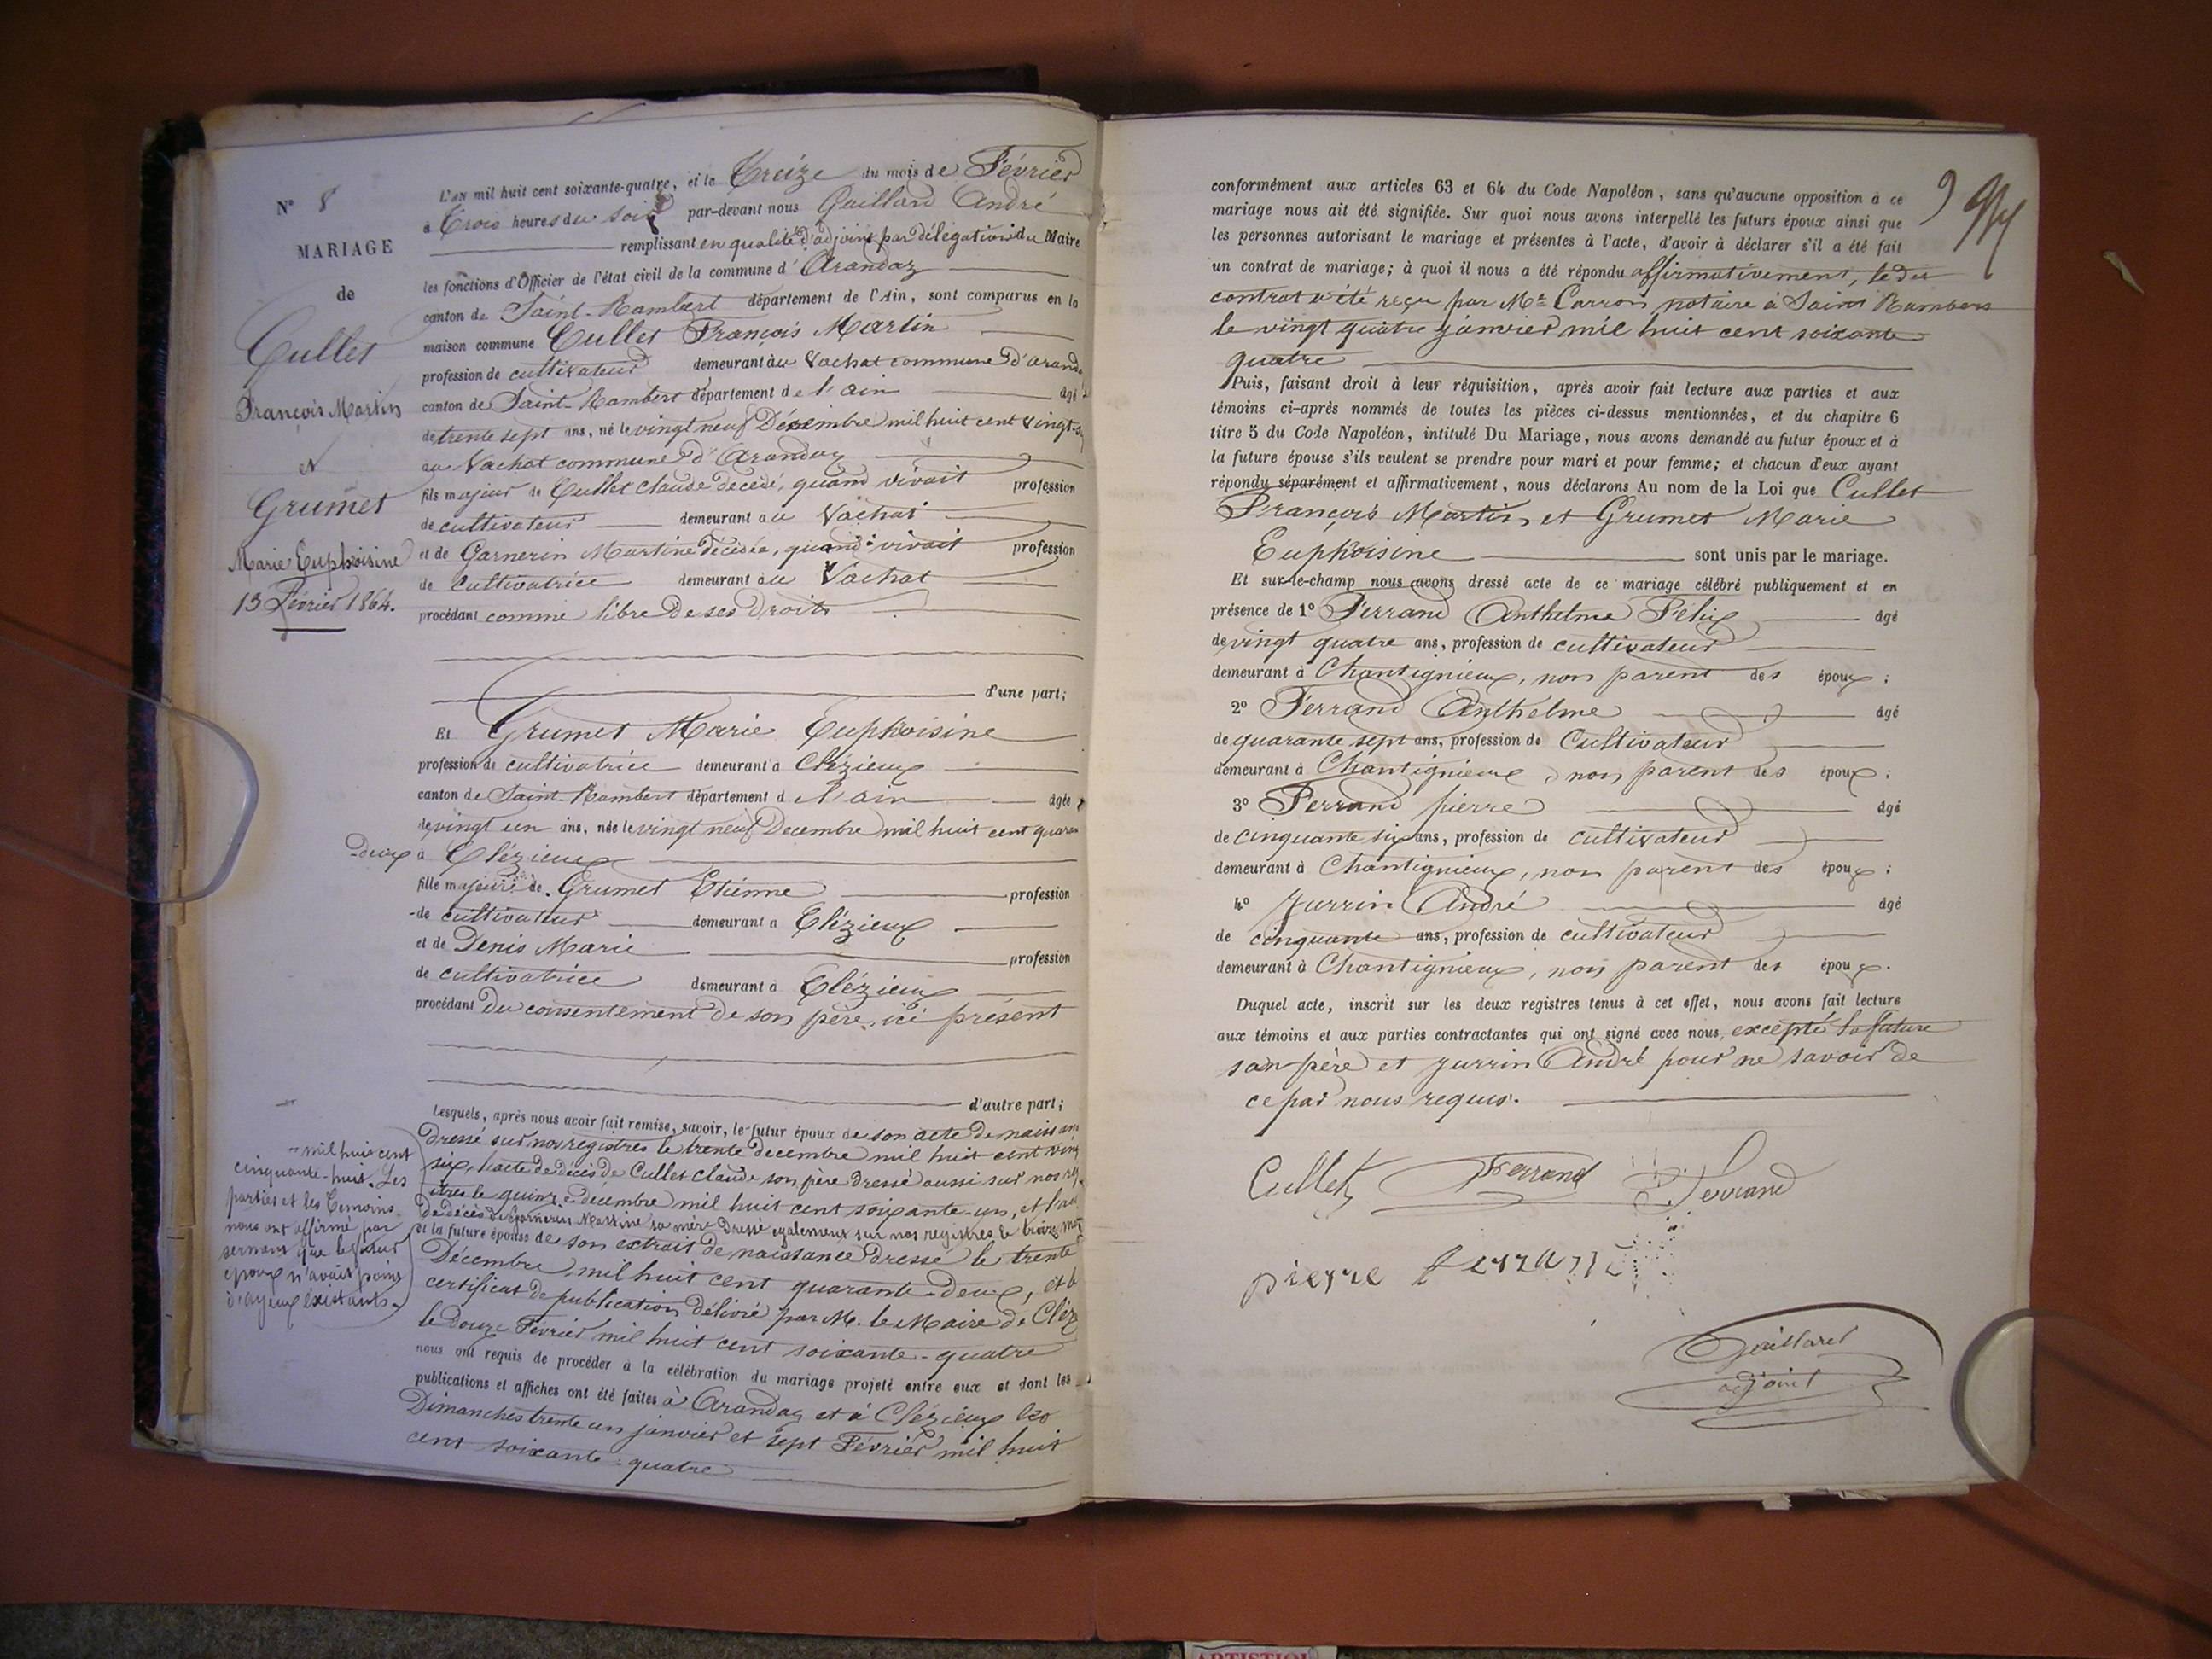 N° 8
MARIAGE
de
Cullet
François Martin
et
Grumet
Marie Euphoisine
13 Février 1864.
L'an mil huit cent soixante-quatre, et le Treize du mois de Février
à Trois heures du soir par-devant nous Gaillard André
remplissant en qualité d'adjoint par délégation du Maire
les fonctions d'Officier de l'état civil de la commune d'Arandaz
canton de Saint-Rambert département de l'Ain, sont comparus en la
maison commune Cullet François Martin
profession de cultivateur demeurant au Vachat commune d'Arand
canton de Saint-Rambert département de l'ain âgé
de trente sept ans, né le vingt neuf Décembre mil huit cent vingt-s
au Vachat commune d'Arandaz
fils majeur de Cullet Claude décédé, quand vivait profession
de cultivateur demeurant au Vachat
et de Garnerin Martine décédée, quand vivait profession
de Cultivatrice demeurant au Vachat
procédant comme libre de ses droits
d'une part;
Et Grumet Marie Euphoisine
profession de cultivatrice demeurant à Clézieux
canton de Saint-Rambert département de l'ain âgée
de vingt un ans, née le vingt neuf Decembre mil huit cent quaran
-deux à Clézieux
fille majeure de Grumet Etienne profession
de cultivateur demeurant à Clézieux
et de Denis Marie profession
de cultivatrice demeurant à Clézieux
procédant du consentement de son père, ici présent
d'autre part;
Lesquels, après nous avoir fait remise, savoir, le futur époux de son acte de naissan
dressé sur nos registres le trente decembre mil huit cent ving
six, l'acte de décès de Cullet Claude son père dressé aussi sur nos reg
istres le quinze decembre mil huit cent soixante-un, et l'act
de décès de Garnerin Martine sa mère dressé egalement sur nos registres le treize mai
mil huit cent
cinquante-huit. Les
parties et les témoins
nous ont affirmé par
serment que le futur
époux n'avait point
d'ayeux existants.
et la future épouse de son extrait de naissance dressé le trente
Décembre mil huit cent quarante-deux, et le
certificat de publication délivré par M. le Maire de Cléz
le douze Février mil huit cent soixante-quatre
nous ont requis de procéder à la célébration du mariage projeté entre eux et dont les
publications et affiches ont été faites à Arandaz et à Clézieux les
Dimanches trente un janvier et sept Février mil huit
cent soixante-quatre
conformément aux articles 63 et 64 du Code Napoléon, sans qu'aucune opposition à ce
mariage nous ait été signifiée. Sur quoi nous avons interpellé les futurs époux ainsi que
les personnes autorisant le mariage et présentes à l'acte, d'avoir à déclarer s'il a été fait
un contrat de mariage; à quoi il nous a été répondu affirmativement, le dit
contrat a été reçu par Me Carron notaire à Saint Rambert
le vingt quatre janvier mil huit cent soixante
quatre
Puis, faisant droit à leur réquisition, après avoir fait lecture aux parties et aux
témoins ci-après nommés de toutes les pièces ci-dessus mentionnées, et du chapitre 6
titre 5 du Code Napoléon, intitulé Du Mariage, nous avons demandé au futur époux et à
la future épouse s'ils veulent se prendre pour mari et pour femme; et chacun d'eux ayant
répondu séparément et affirmativement, nous déclarons Au nom de la Loi que Cullet
François Martin et Grumet Marie
Euphoisine sont unis par le mariage.
Et sur-le-champ nous avons dressé acte de ce mariage célébré publiquement et en
présence de 1° Ferrand Anthelme Félix âgé
de vingt quatre ans, profession de cultivateur
demeurant à Chantignieux, non parent des époux;
2° Ferrand Anthelme âgé
de quarante sept ans, profession de Cultivateur
demeurant à Chantignieux, non parent des époux;
3° Ferrand pierre âgé
de cinquante six ans, profession de cultivateur
demeurant à Chantignieux, non parent des époux;
4° Jurrin André âgé
de cinquante ans, profession de cultivateur
demeurant à Chantignieux, non parent des époux.
Duquel acte, inscrit sur les deux registres tenus à cet effet, nous avons fait lecture
aux témoins et aux parties contractantes qui ont signé avec nous, excepté la future
son père et Jurrin André pour ne savoir de
ce par nous requis.
Cullet Ferrand Ferrand
pierre ferrand
Gaillard
adjoint